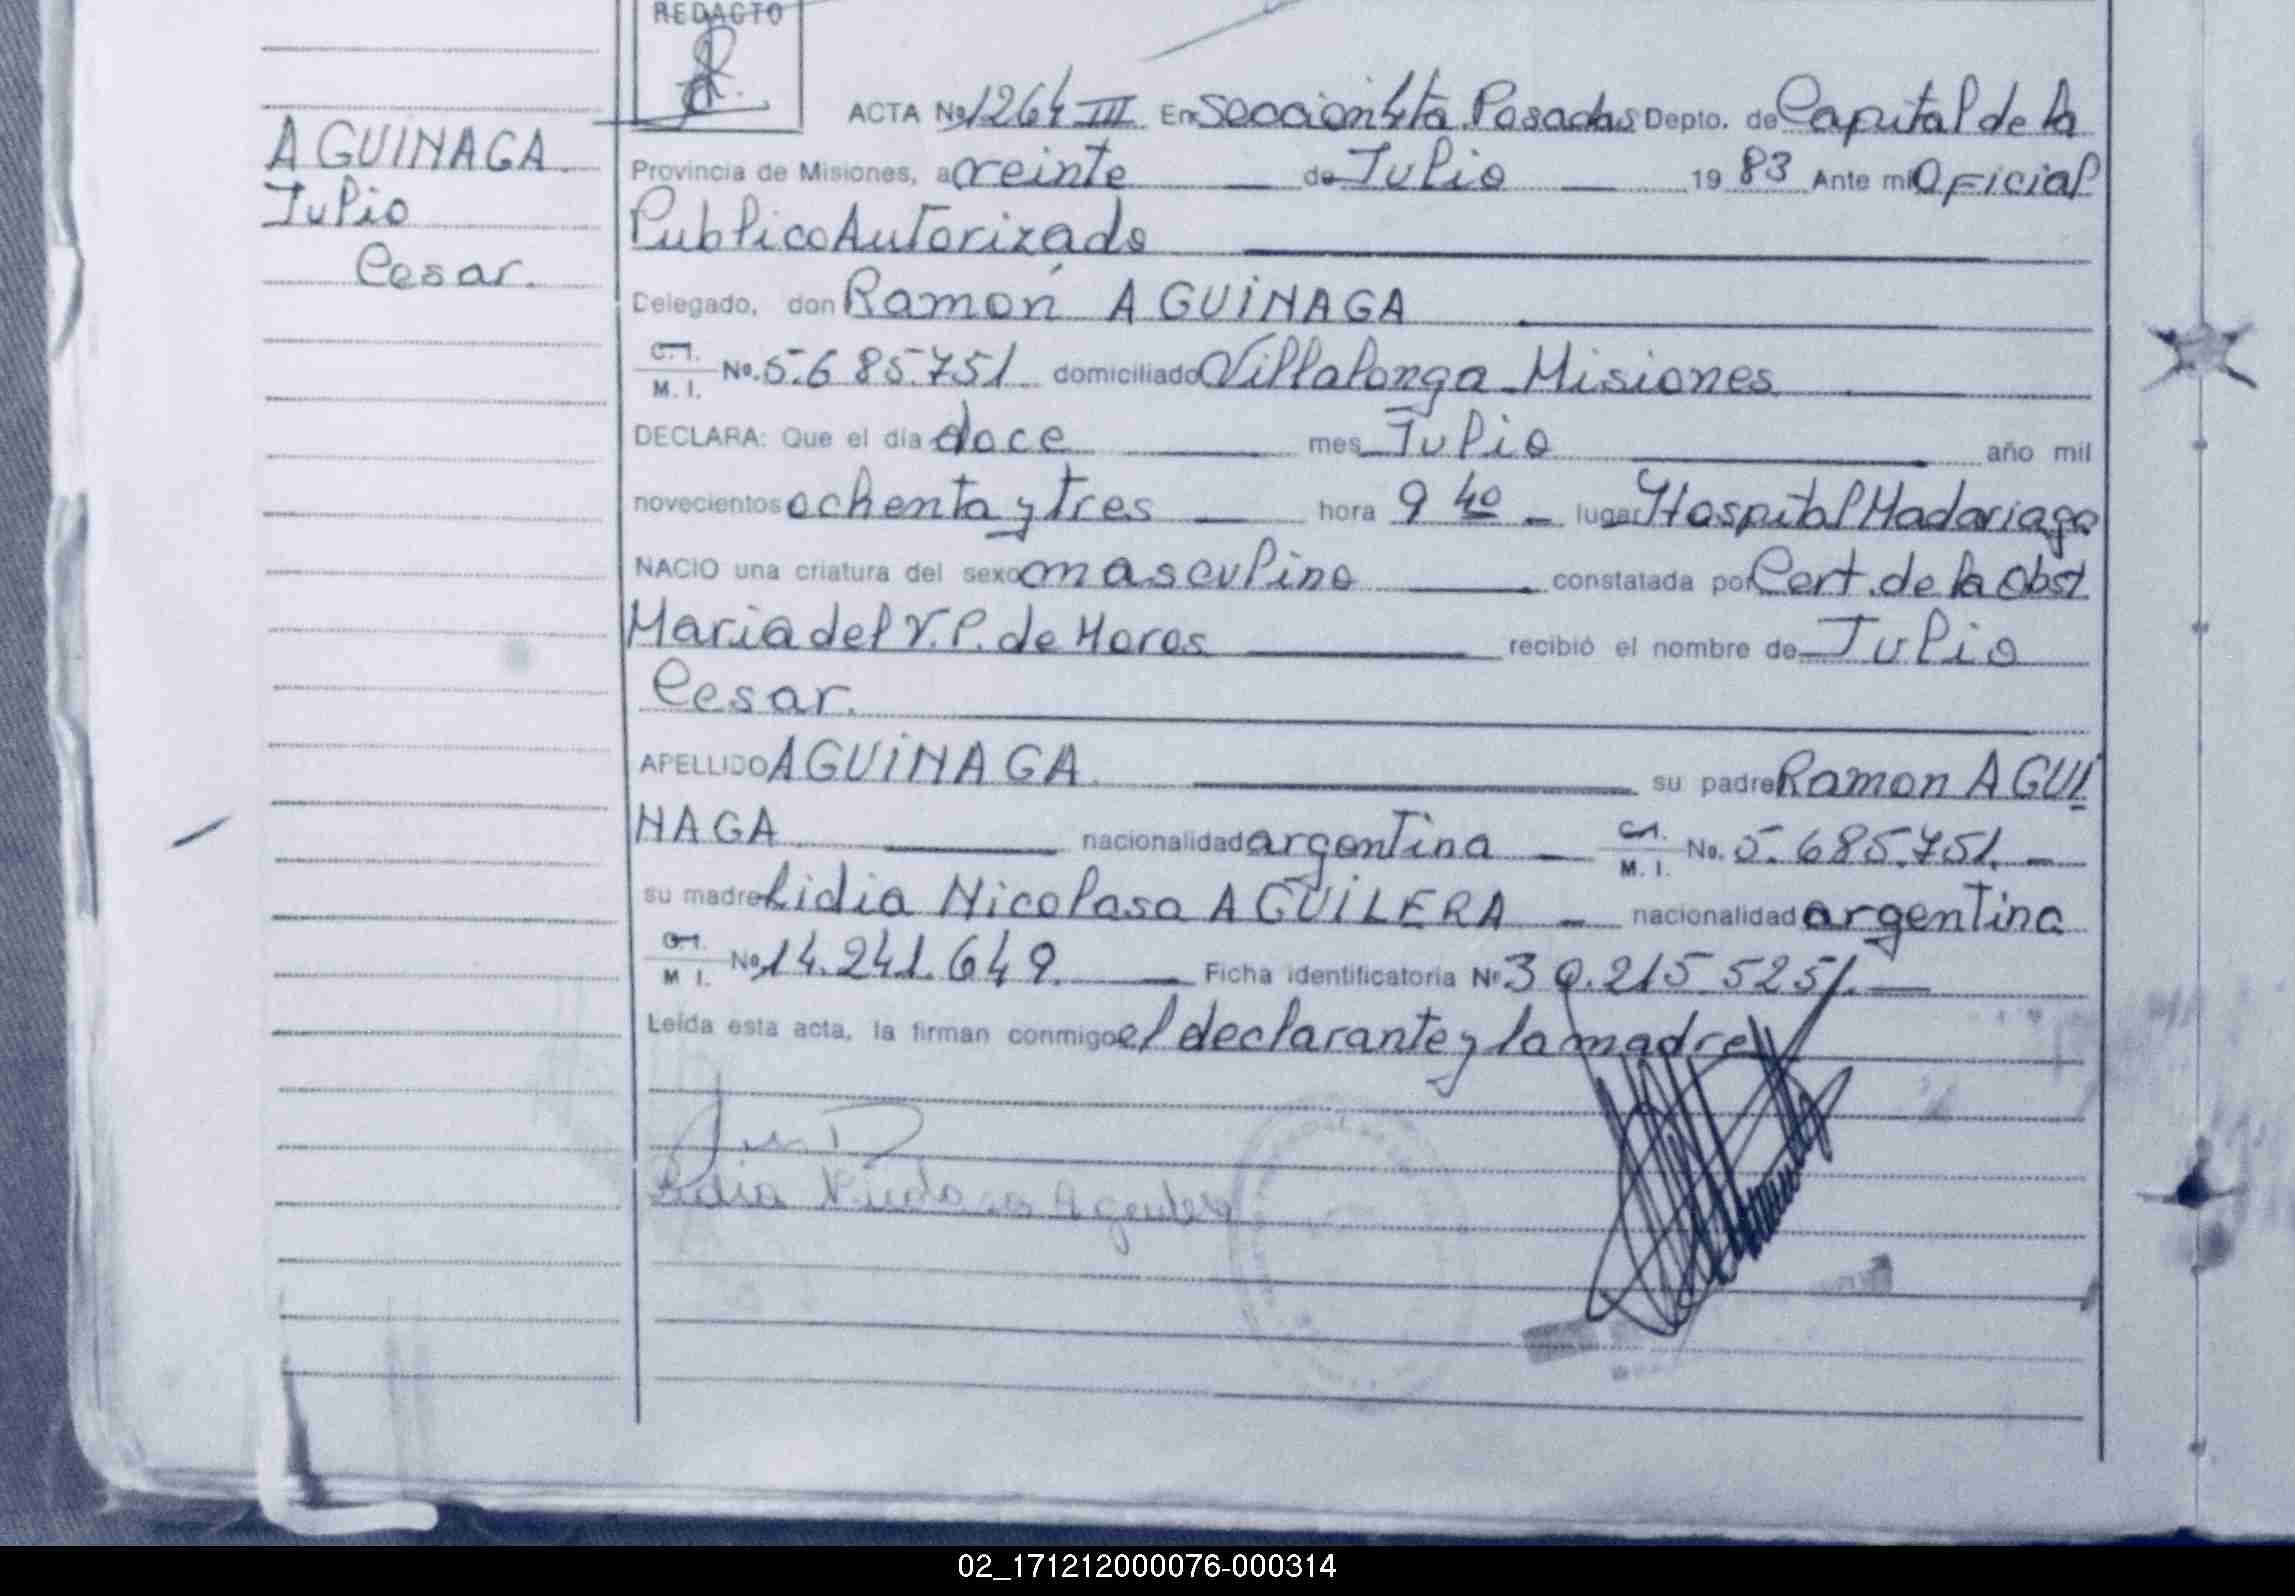 REDACTO
AGUINAGA
Julio
Cesar.
ACTA No 1264 III En Seccion 4ta Posadas Depto. de Capital de la
Provincia de Misiones, a veinte de Julio 19 83 Ante mi Oficial
Publico Autorizado
Delegado, don Ramón AGUINAGA
C.I.
M. I. No. 5.685.751 domiciliado Villalonga Misiones
DECLARA: Que el día doce mes Julio año mil
novecientos ochenta y tres hora 9 40 lugar Hospital Madariaga
NACIO una criatura del sexo masculino constatada por Cert. de la Obst
Maria del V. P. de Moros recibió el nombre de Julio
Cesar.
APELLIDO AGUINAGA su padre Ramon AGUI
NAGA nacionalidad argentina C.I. M. I. No. 5.685.751.
su madre Lidia Nicolasa AGUILERA nacionalidad argentina
C.I.
M I. No 14.241.649. Ficha identificatoria Nº 30.215 525/.
Leída esta acta, la firman conmigo el declarante y la madre
02_171212000076-000314